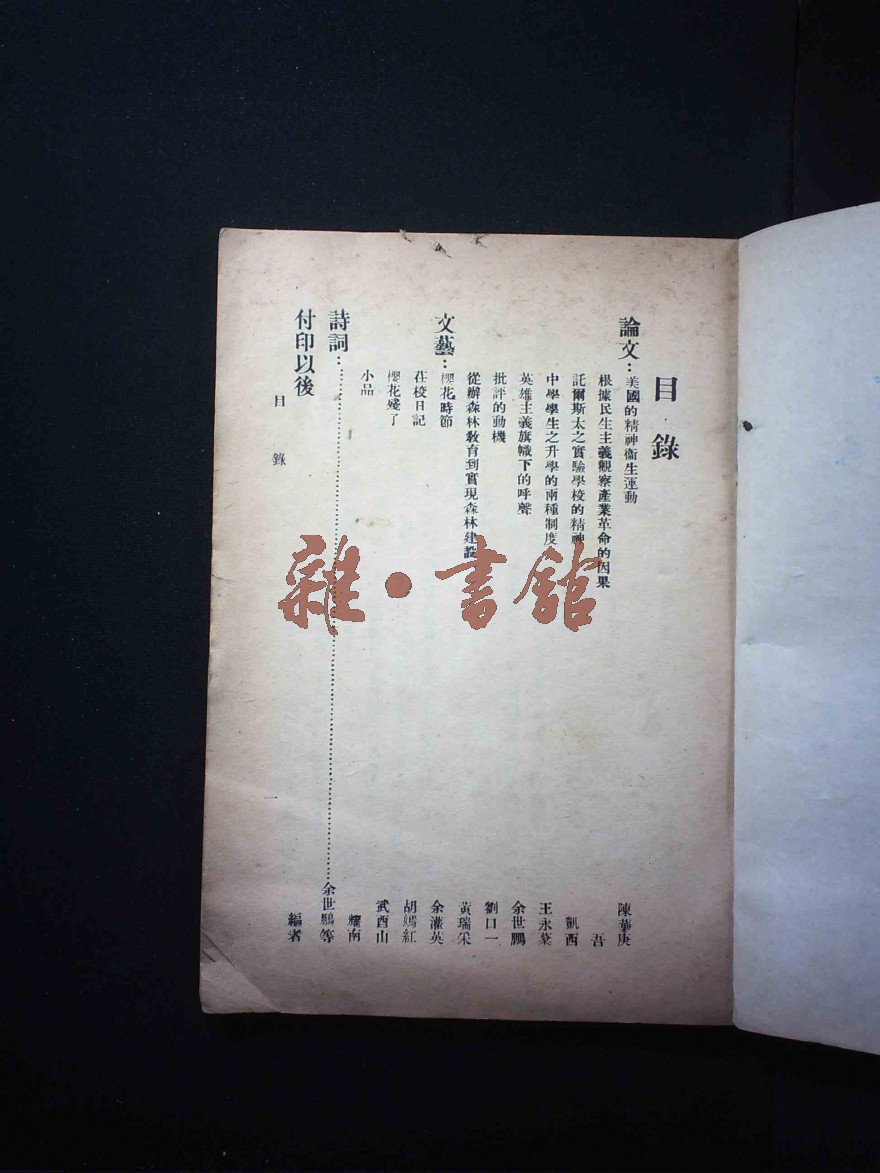 目錄
論文：美國的精神衞生運動 陳華庚
根據民生主義觀察產業革命的因果 吾
託爾斯太之實驗學校的精神 凱西
中學學生之升學的兩種制度 王永棻
英雄主義旗幟下的呼聲 余世鵬
批評的動機 劉口一
從辦森林教育到實現森林建設 黃瑞采
文藝：櫻花時節 余灌英
在校日記 胡嫣紅
櫻花殘了 武酉山
小品 耀南
詩詞：余世鵬等
付印以後 編者
目錄
一
雜·書館